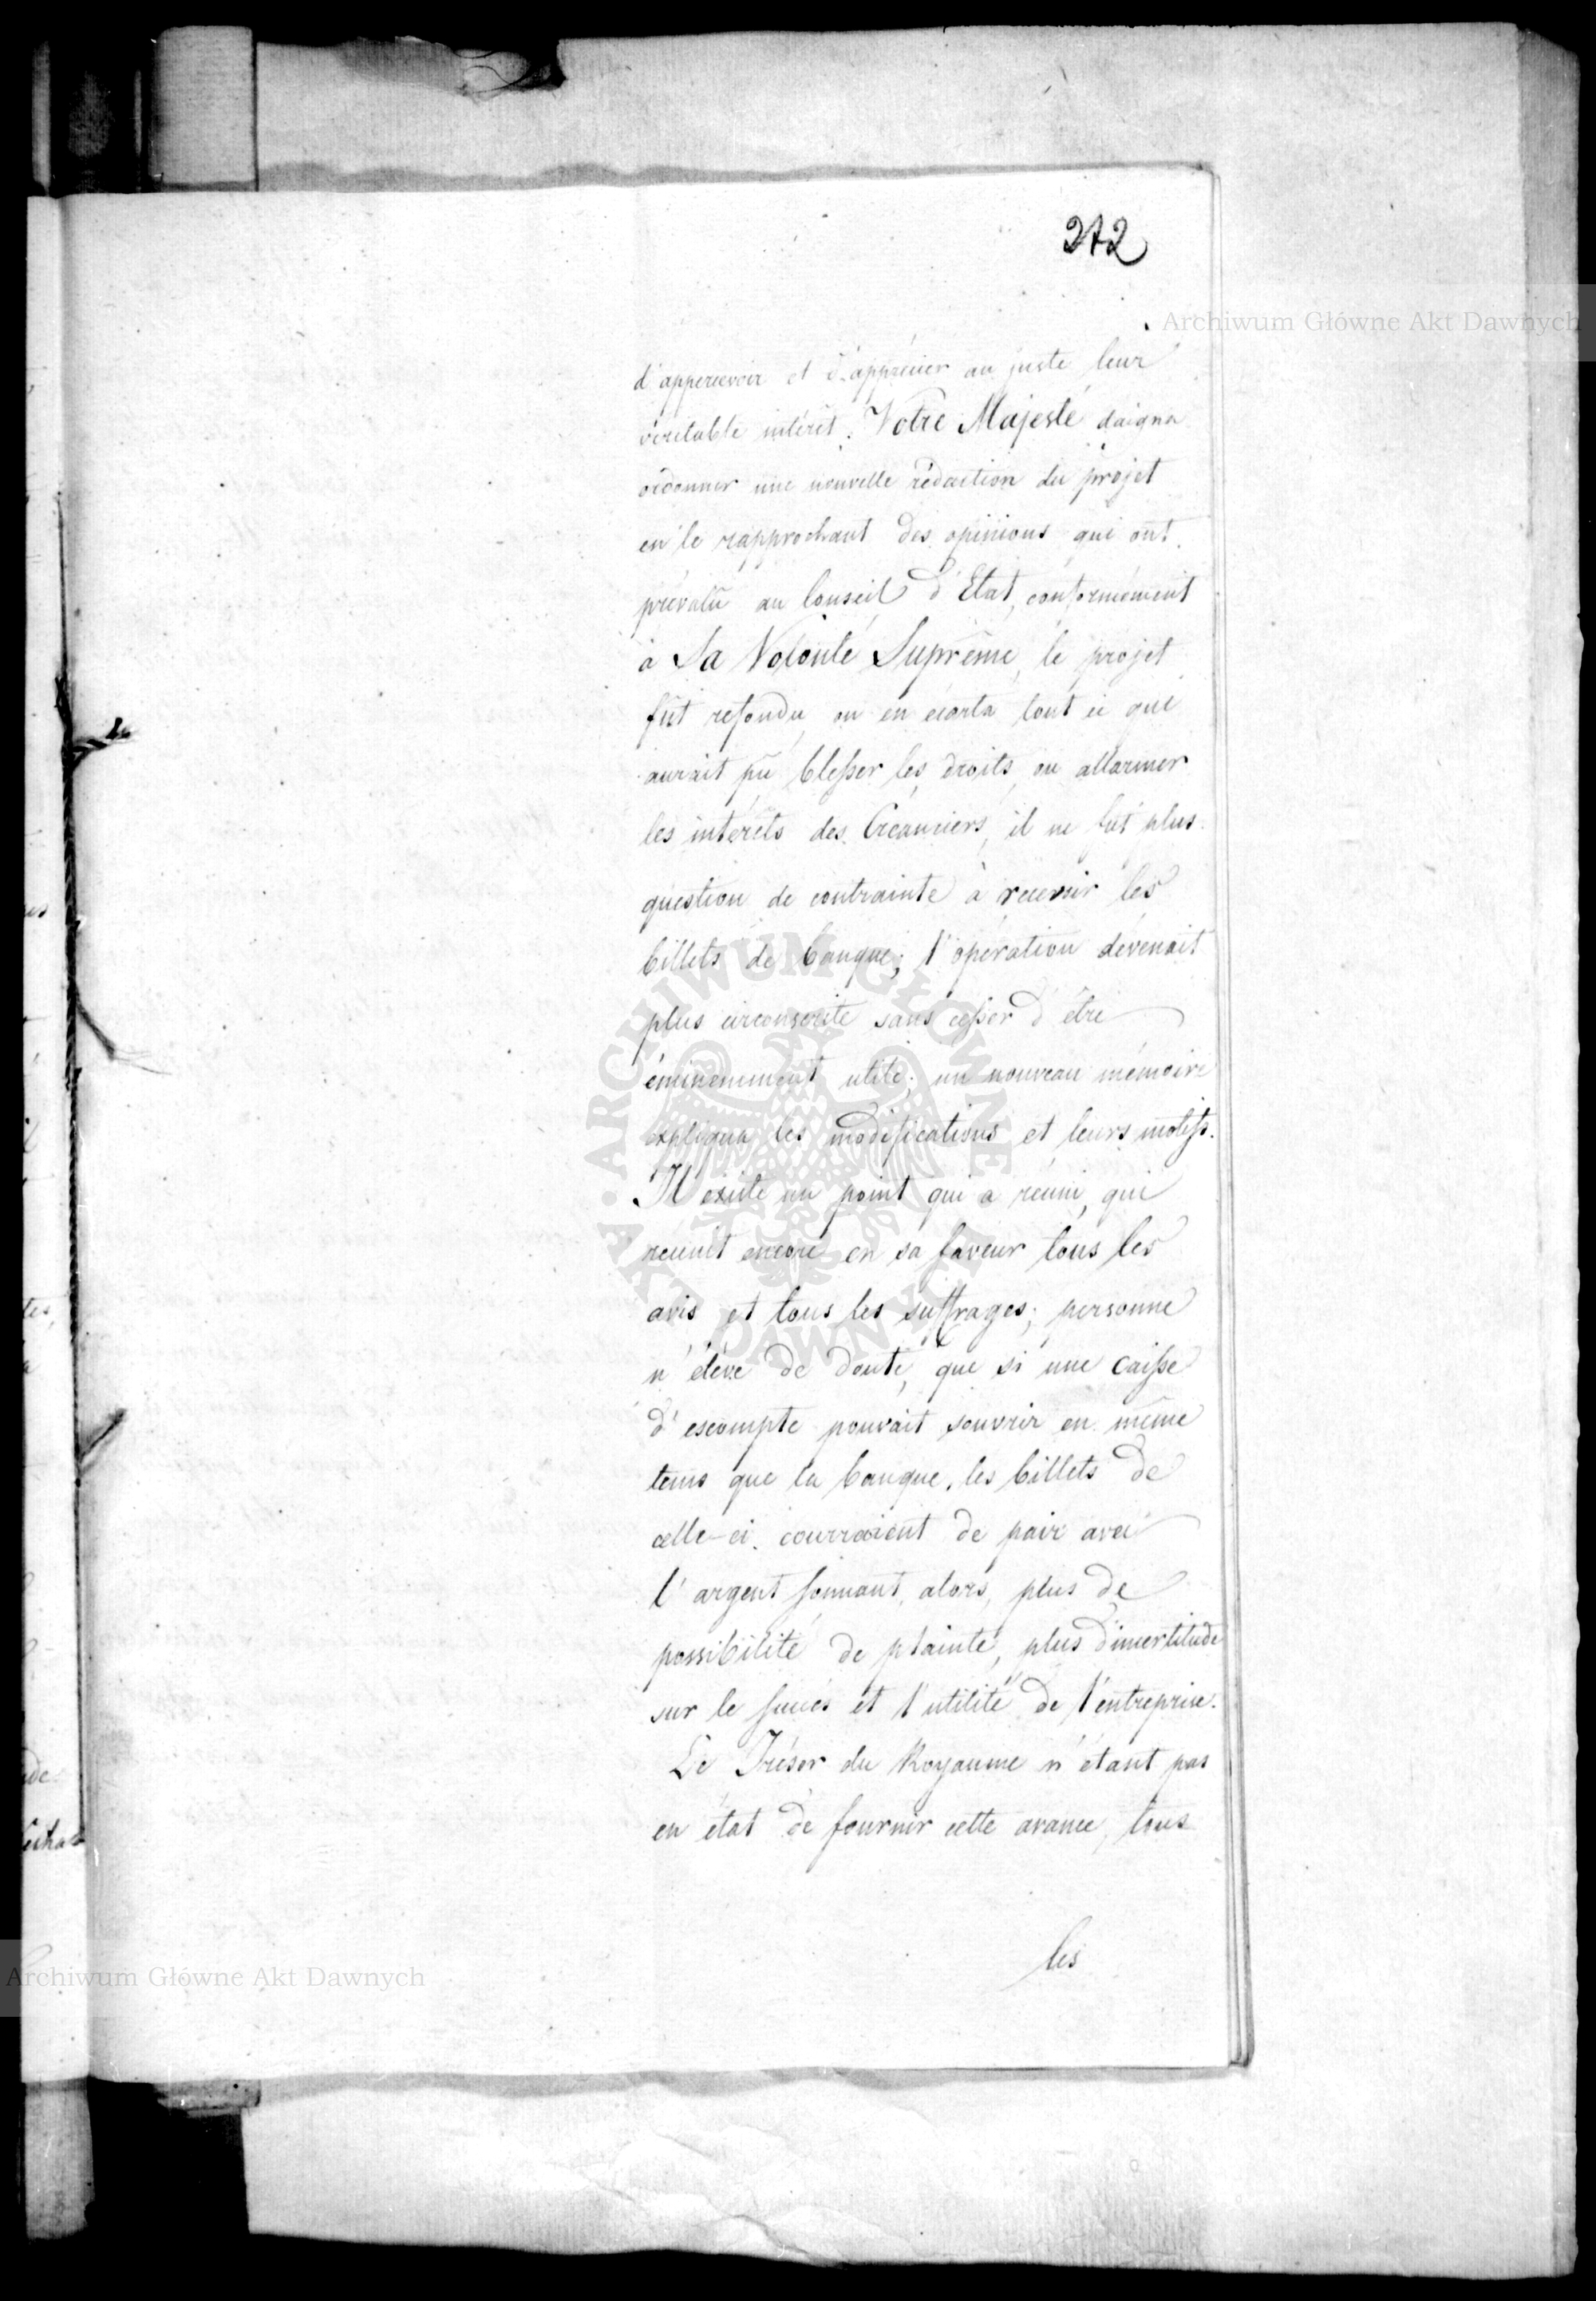 272
Archiwum Główne Akt Dawnych
d'appercevoir et d'apprécier au juste leur
véritable intérêt. Votre Majesté daigna
ordonner une nouvelle rédaction du projet
en le rapprochant des opinions qui ont
prévalu au Conseil d'Etat, conformément
à Sa Volonté Suprême, le projet
fût refondu, on en écarta tout ce qui
aurait pû blesser les droits, ou allarmer
les intérêts des Créanciers, il ne fut plus
question de contrainte à recevoir les
billets de banque; l'opération devenait
plus circonscrite sans cesser d'être
éminemment utile; un nouveau mémoire
expliqua les modifications et leurs motifs.
Il existe un point qui a réuni, qui
réunit encore en sa faveur tous les
avis et tous les suffrages; personne
n'élève de doute, que si une caisse
d'escompte pouvait souvrir en même
tems que la banque, les billets de
celle-ci courraient de pair avec
l'argent sonnant, alors, plus de
possibilité de plainte, plus d'incertitude
sur le succès et l'utilité de l'entreprise.
Le Trésor du Royaume n'étant pas
en état de fournir cette avance, tous
les
Archiwum Główne Akt Dawnych
ARCHIWUM GŁÓWNE AKT DAWNYCH